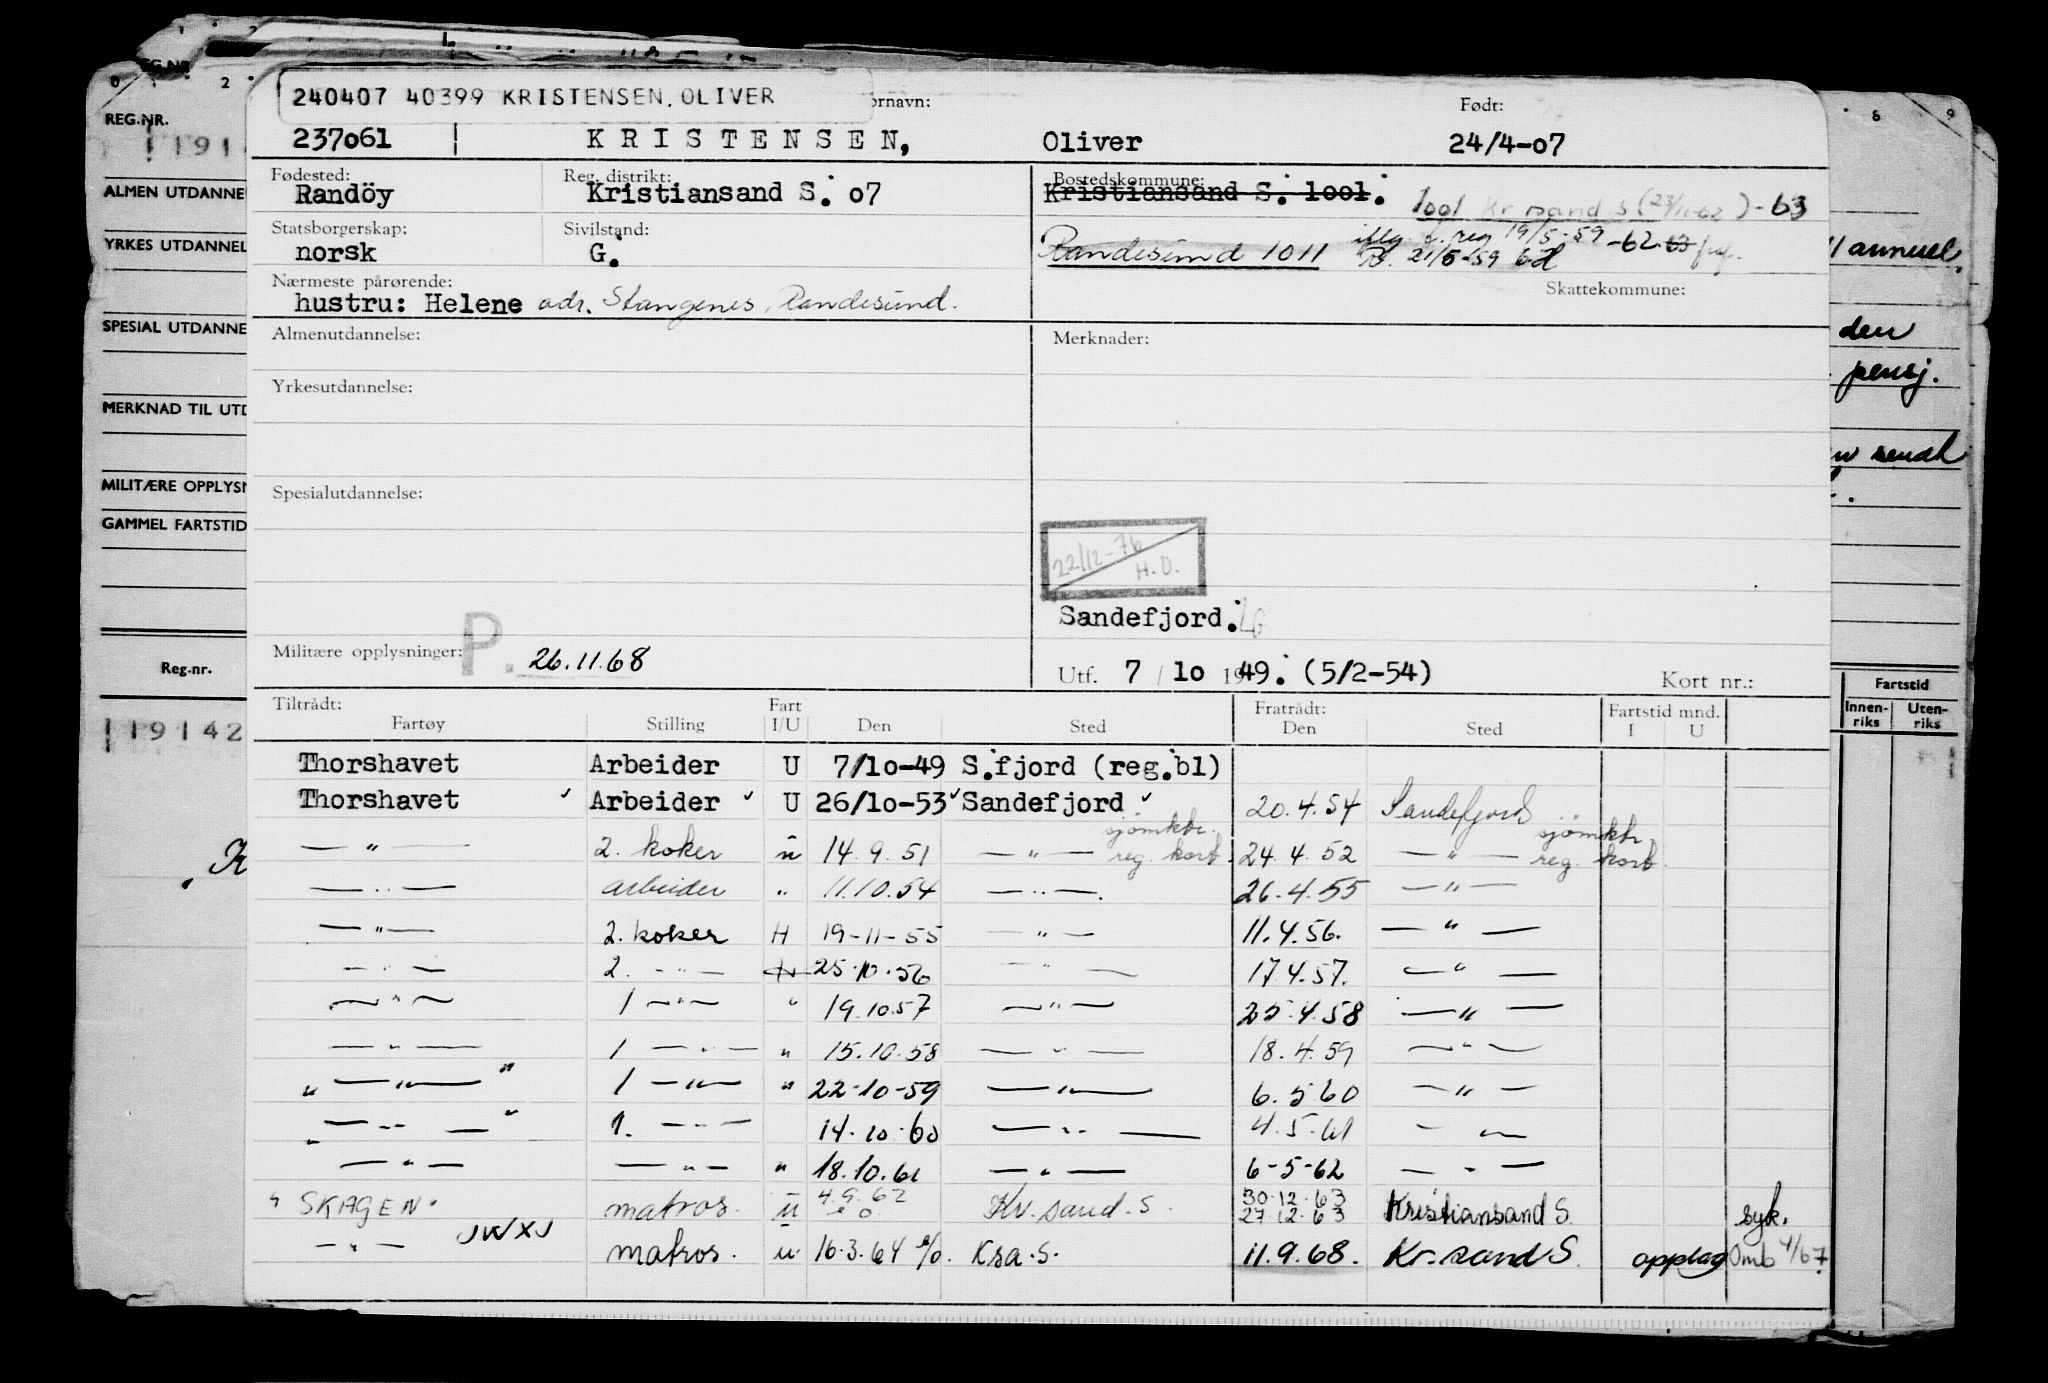 240407 40399 KRISTENSEN, OLIVER
ornavn: Født:
237061 K R I S T E N S E N, Oliver 24/4-07
Fødested: Reg. distrikt: Bostedskommune:
Randöy Kristiansand S. 07 Kristiansand S. 1001.
1001 Kr sand S (23/11-62) - 63
Statsborgerskap: Sivilstand:
norsk G.
Randesund 1011 reg 19/5-59 -62 63
21/5-59
Nærmeste pårørende: Skattekommune:
hustru: Helene adr. Stangenes, Randesund.
Almenutdannelse: Merknader:
Yrkesutdannelse:
Spesialutdannelse:
22/12-76
H.D.
Sandefjord.
Militære opplysninger: P. 26.11.68
Utf. 7 / 10 1949. (5/2-54) Kort nr.:
Tiltrådt: Fart Fratrådt: Fartstid mnd.
Fartøy Stilling I/U Den Sted Den Sted I U
Thorshavet Arbeider U 7/10-49 S.fjord (reg.bl)
Thorshavet ✓ Arbeider ✓ U 26/10-53 ✓ Sandefjord ✓ 20.4.54 Sandefjord
— " — 2. koker u 14.9.51 — " — sjömktr. reg. kort. 24.4.52 — " — sjömktr reg. kort.
— " — arbeider " 11.10.54 — " —. 26.4.55 — " —
— " — 2. koker H 19-11-55 — " — 11.4.56. — " —
— " — 2. — " — 25.10.56 — " — 17.4.57. — " —
— " — 1 — " — " 19.10.57 — " — 25.4.58 — " —
— " — 1 — " — " 15.10.58 — " — 18.4.59 — " —
" — " — " 1 — " — " 22-10-59 — " — 6.5.60 — " —
" — " — " 1. — " — 14.10.60 — " — 4.5.61 — " —
— " — — " — " 18.10.61 — " — 6-5-62 — " —
SKAGEN matros. u 4.9.62 Kr.sand.S. 30.12.63 27.12.63 Kristiansand S. syk.
— " — JWXJ matros. u. 16.3.64 Ksa.S. 11.9.68. Kr.sand S. opplag Omb 4/67
REG.NR.
ALMEN UTDANNE
YRKES UTDANNEL
SPESIAL UTDANNE
MERKNAD TIL UTD
MILITÆRE OPPLYSN
GAMMEL FARTSTID
Reg.nr.
19142
den
pensj.
Fartstid
Innen-riks Uten-riks